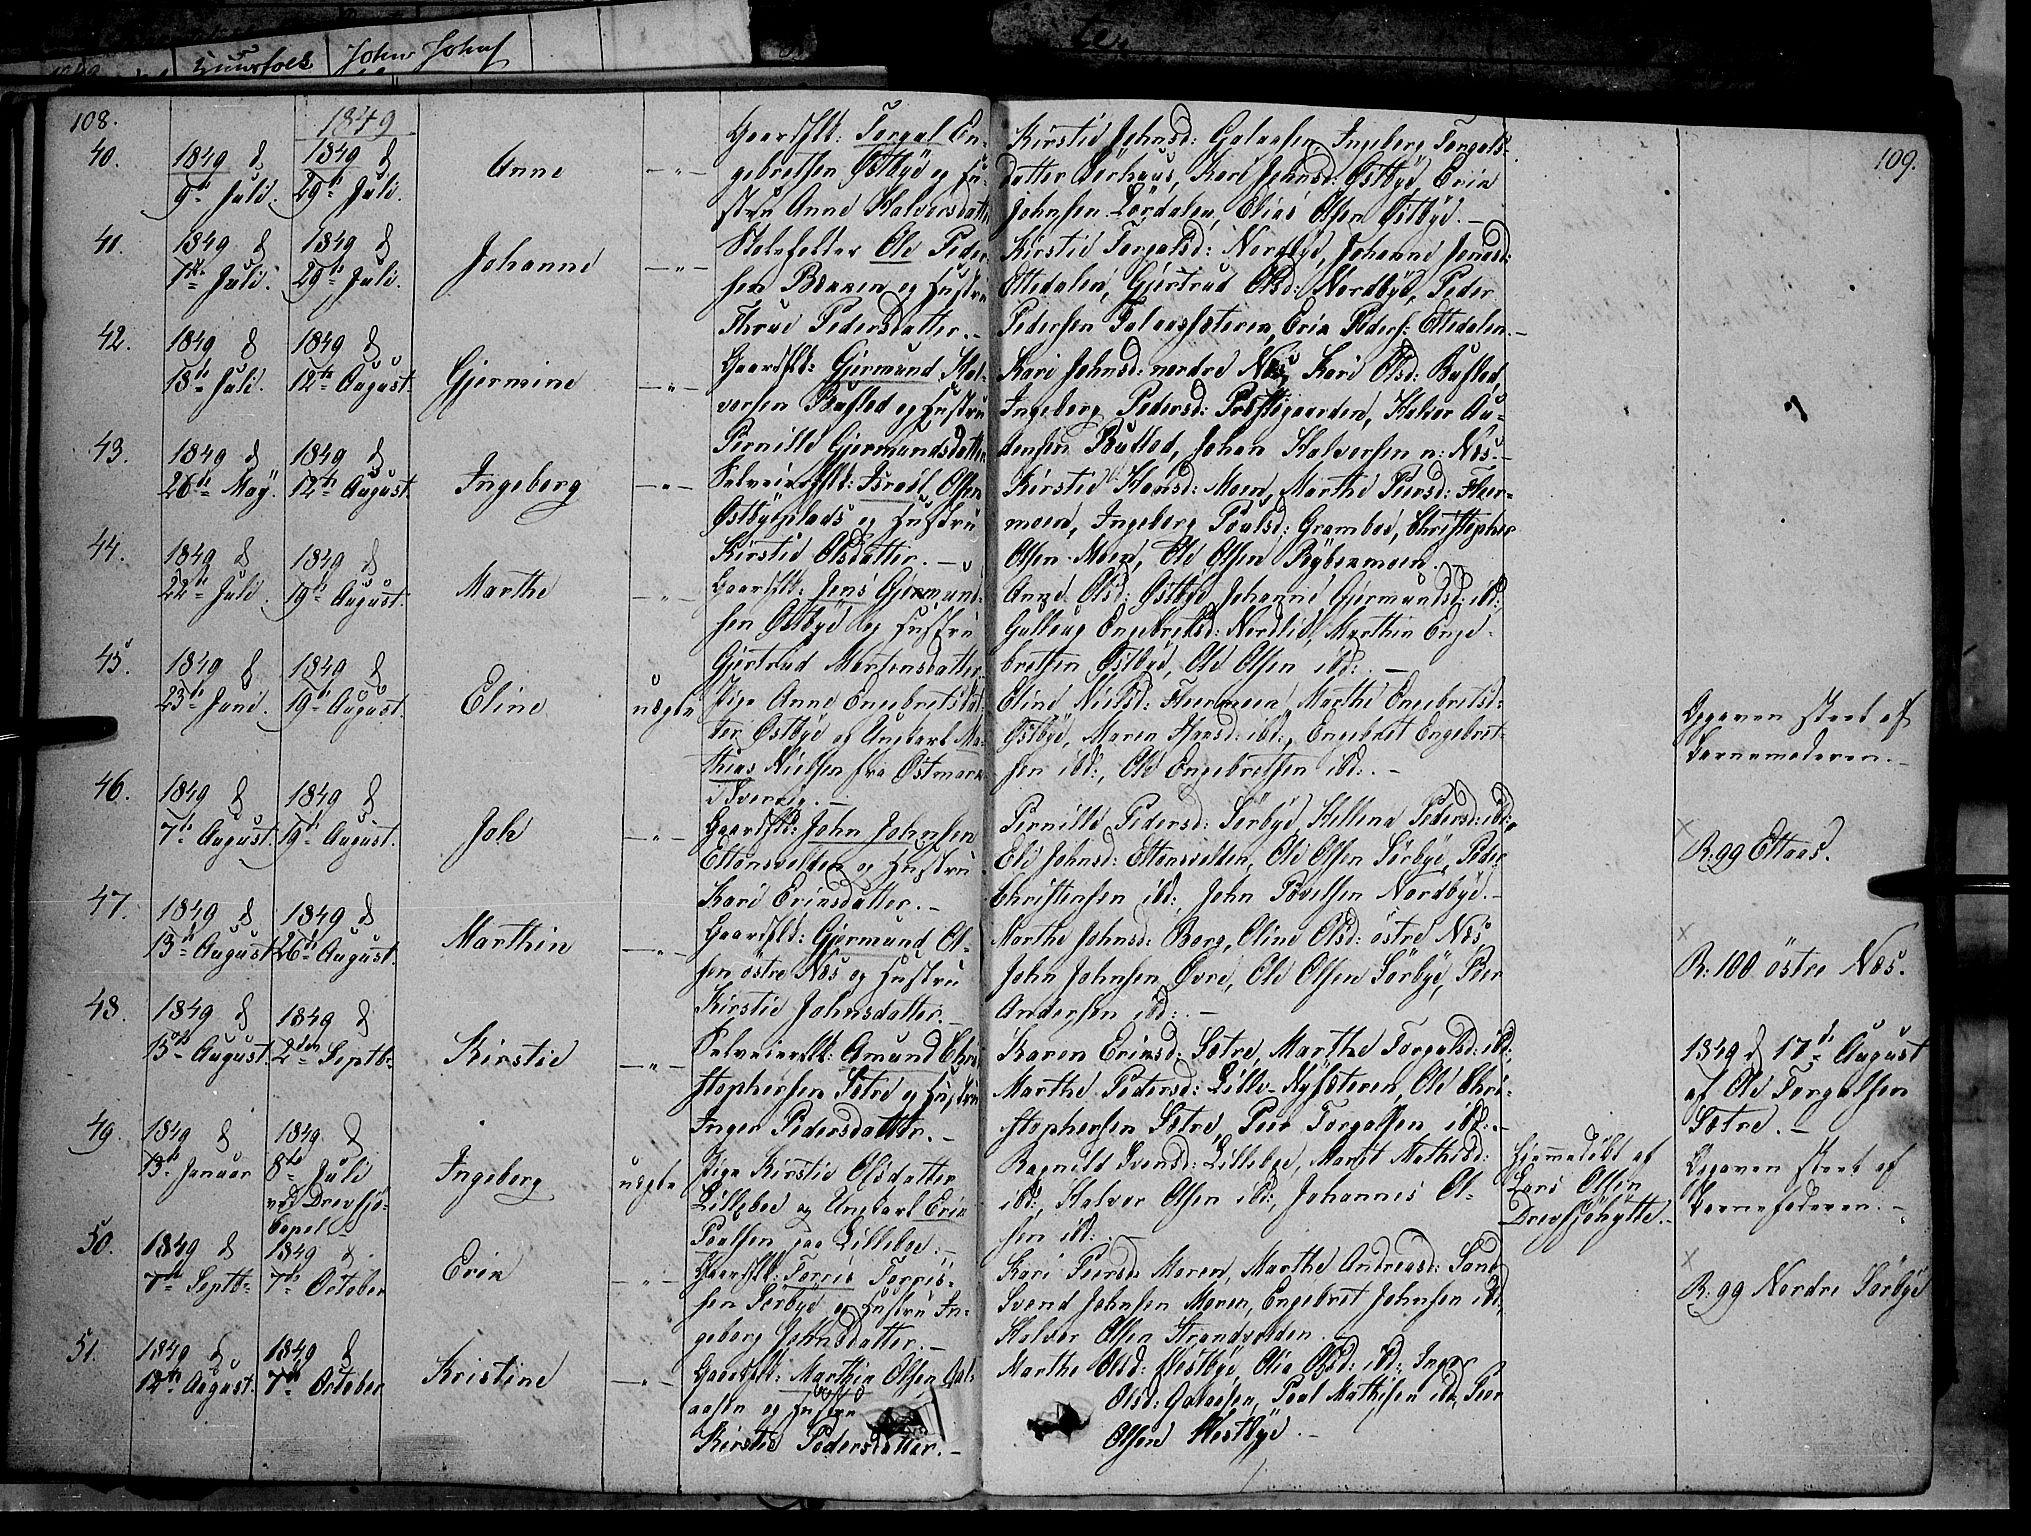 Huusfolk John Johns
108.
1849
40. 1849 d 9de Juli. 1849 d 29de Juli. Anne —"— Gaardflk: Torgal En-
gebretsen Östbye og Hu-
stru Anne Halvorsdatter
Kirstie Johnsd: Galaasen, Ingeborg Torgals-
datter Sörhuus, Kari Johnsd: Östbye, Erik
Johnsen Lördalen, Elias Olsen Östbye. —
109.
41. 1849 d 1ste Juli. 1849 d 29de Juli. Johanne —"— Ole Peder-
sen og Hustru
Thrue Pedersdatter. —
Kirstie Torgalsd: Nordbye, Johanne Jonasd:
Ettedalen, Gjertrud Olsd: Nordbye, Peder
Pedersen Erik Peders: Ettedalen. —
42. 1849 d 18de Juli. 1849 d 12te August. Gjermine —"— Gaardflk: Gjermund Hal-
vorsen Bufled og Hustru
Pernille Gjermundsdatter
Kari Johnsd: nordre Næs, Kari Olsd: Bufled,
Ingeborg Pedersd: Præstegaarden, Halvor Au-
densen Bufled, Johan Halvorsen n: Næs. —
43. 1849 d 26de May. 1849 d 12te August. Ingeborg —"— Selveierflk: Israel Olsen
Östbyeplads og Hustru
Kirstie Olsdatter. —
Kirstie Hansd: Moen, Marthe Peersd: Fler-
moen, Ingeborg Poulsd: Gramboe, Christopher
Olsen Moen, Ole Olsen Rybenmoen. —
44. 1849 d 22de Juli. 1849 d 19de August. Marthe —"— Gaardflk: Jens Gjermund-
sen Östbye og Hustru
Gjertrud Mortensdatter.
Anne Olsd: Östbye, Johanne Gjermundsd: ibd:,
Gulloug Engebretsd: Nordlie, Marthin Enge-
bretsen Östbye, Ole Olsen ibd: —
45. 1849 d 23de Juni. 1849 d 19de August. Eline uægte Pige Anne Engebretsdat-
ter Östbye og Ungkarl Ma-
thias Nielsen fra Östmark
i Sverrig. —
Eline Nielsd: Flermoen, Marthe Engebretsd:
Östbye, Maren Hansd: ibd:, Engebret Engebret-
sen ibd:, Ole Engebretsen ibd: —
Opgaven skeet af
Barnemoderen. —
46. 1849 d 7de August. 1849 d 19de August. Joh —"— Gaardflk: John Johnsen
Ettensvelten og Hustru
Kari Eriksdatter. —
Pernille Pedersd: Sörbye, Hellena Pedersd: ibd:,
Eli Johnsd: Ettensvelten, Ole Olsen Sörbye, Peder
Christensen ibd:, John Povelsen Nordbye. —
R. 99 Ettaas.
47. 1849 d 13de August. 1849 d 26de August. Marthin —"— Gaardflk: Gjermund Ol-
sen östre Næs og Hustru
Kirstie Johnsdatter. —
Marthe Johnsd: Berg, Oline Olsd: östre Næs,
John Johnsen Övre, Ole Olsen Sörbye, Peer
Andersen ibd: —
R. 100 östre Næs.
48. 1849 d 13de August. 1849 d 2den Septb: Kirstie —"— Selveierflk: Amund Chri-
stophersen Sætre og Hustru
Inger Pedersdatter. —
Karen Eriksd: Sætre, Marthe Torgalsd: ibd:,
Marthe Pedersd: Lille-Nysæteren, Ole Chri-
stophersen Sætre, Peer Torgalsen ibd: —
1849 d 17de August
af Ole Torgalsen
Sætre. —
49. 1849 d 13de Januar 1849 d 8de Juli
ved Drevsjö-
Capel Ingeborg uægte Pige Kirstie Olsdatter
Lilleboe og Ungkarl Erik
Poulsen paa Lilleboe. —
Ragnild Svensd: Lilleboe, Marit Mathisd:
ibd:, Halvor Olsen ibd:, Johannes Ol-
sen ibd: —
Hjemmedöbt af
Lars Olsen
Drevsjöhytte. —
Opgaven skeet af
Barnefaderen. —
50. 1849 d 7de Septb: 1849 d 7de October Erik —"— Gaardflk: Torris Torris-
sen Sörbye og Hustru In-
geborg Johnsdatter. —
Kari Peersd: Moren, Marthe Andreasd: Sand
Svend Johnsen Moren, Engebret Johnsen ibd:,
Halvor Olsen Strandvolden. —
R. 99 Nordre Sörbye
51. 1849 d 12te August. 1849 d 7de October Kristine —"— Gaardflk: Marthin Olsen Gal-
aasen og Hustru
Kirstie Pedersdatter. —
Marthe Olsd: Westbye, Olia Olsd: ibd:, Inger
Olsd: Galaasen, Poul Mathisen ibd:, Peer
Olsen Westbye. —